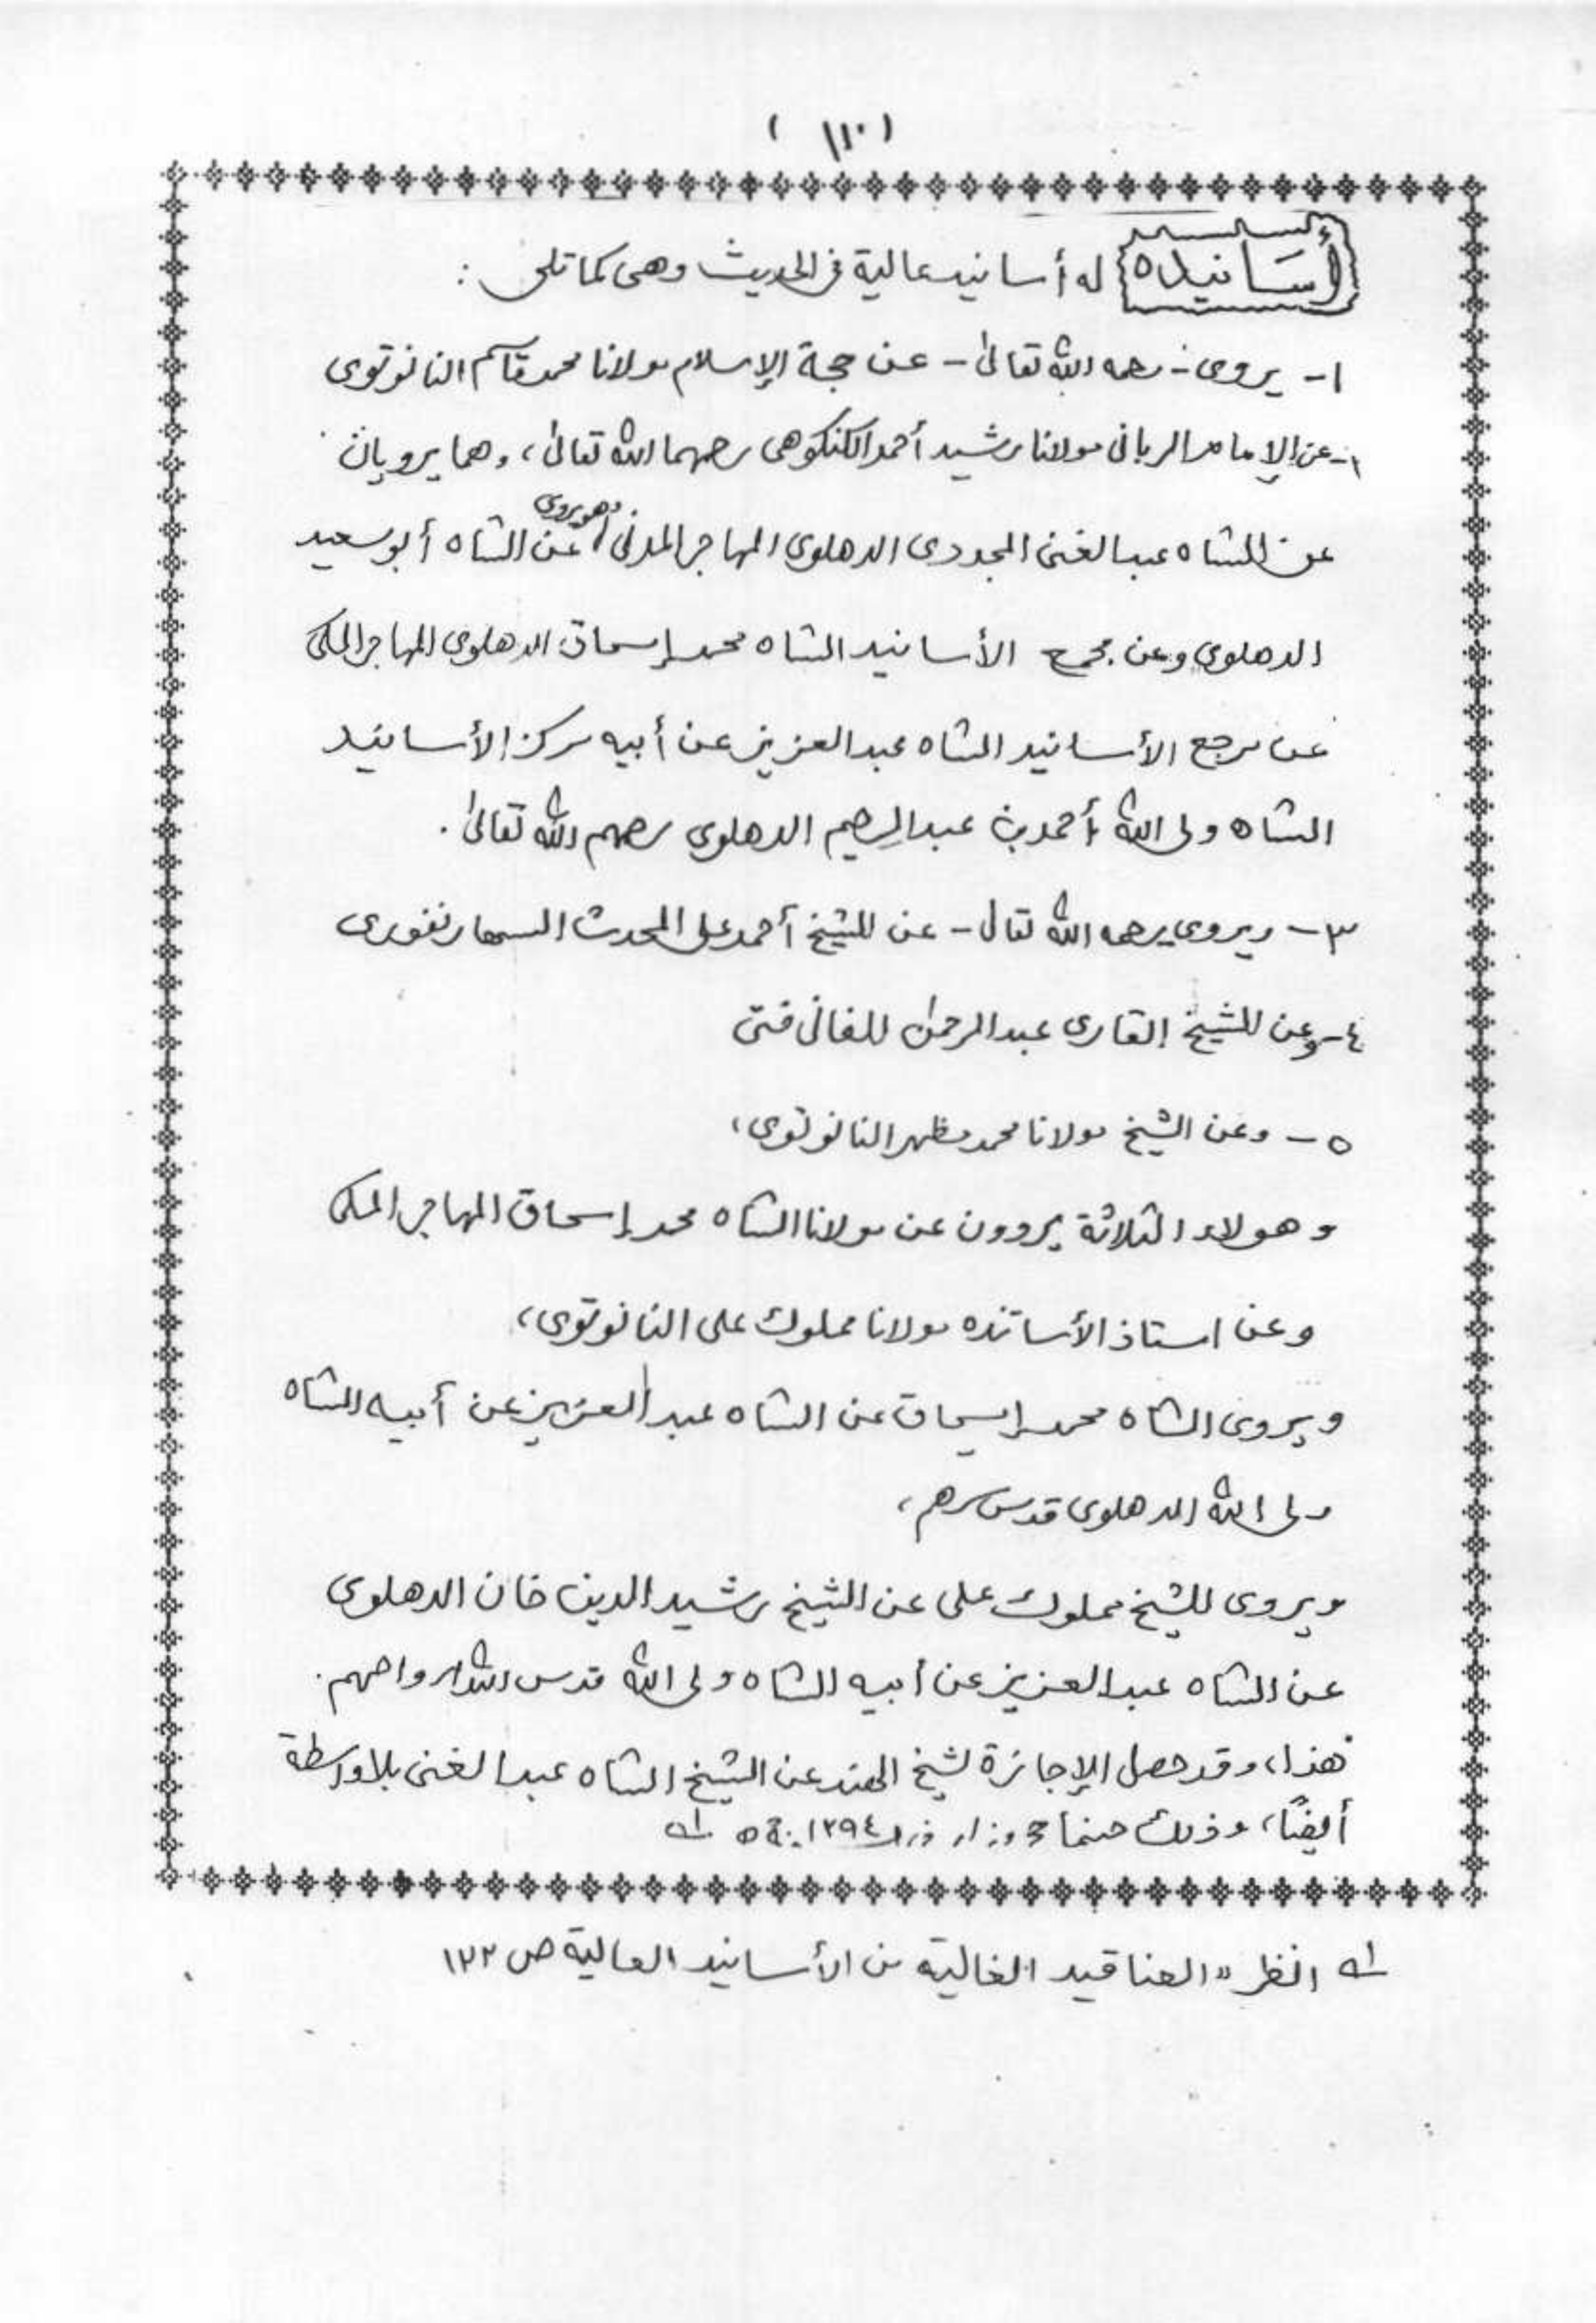 (١١٠)
أسانيده له أسانيد عالية في الحديث وهي كما تلي :
١- يروى - رحمه الله تعالى - عن حجة الإسلام مولانا محمد قاسم النانوتوى
عن الإمام الربانى مولانا رشيد أحمد الكنكوهى رحمهما الله تعالى، وهما يرويان
عن الشاه عبد الغنى المجددى الدهلوى المهاجر المدنى وهو يروى عن الشاه أبو سعيد
الدهلوى وعن مجمع الأسانيد الشاه محمد إسحاق الدهلوى المهاجر المكى
عن مرجع الأسانيد الشاه عبد العزيز عن أبيه مركز الأسانيد
الشاه ولى الله أحمد بن عبد الرحيم الدهلوى رحمهم الله تعالى.
٣- ويروى رحمه الله تعالى - عن الشيخ أحمد على المحدث السهارنفورى
٤- وعن الشيخ القارى عبد الرحمن الفانى فتى
٥- وعن الشيخ مولانا محمد مظهر النانوتوى،
وهولاء الثلاثة يروون عن مولانا الشاه محمد إسحاق المهاجر المكى
وعن استاذ الأساتذه مولانا مملوك على النانوتوى،
ويروى الشاه محمد إسحاق عن الشاه عبد العزيز عن أبيه الشاه
ولى الله الدهلوى قدس سرهم،
ويروى الشيخ مملوك على عن الشيخ رشيد الدين خان الدهلوى
عن الشاه عبد العزيز عن أبيه الشاه ولى الله قدس الله ارواحهم.
هذا، وقد حصل الإجازة لشيخ الهند عن الشيخ الشاه عبد الغنى بلا واسطة
أيضًا، وذلك حينما حج وزار ١٢٩٤ه
انظر "العناقيد الغالية من الأسانيد العالية ص ١٢٢